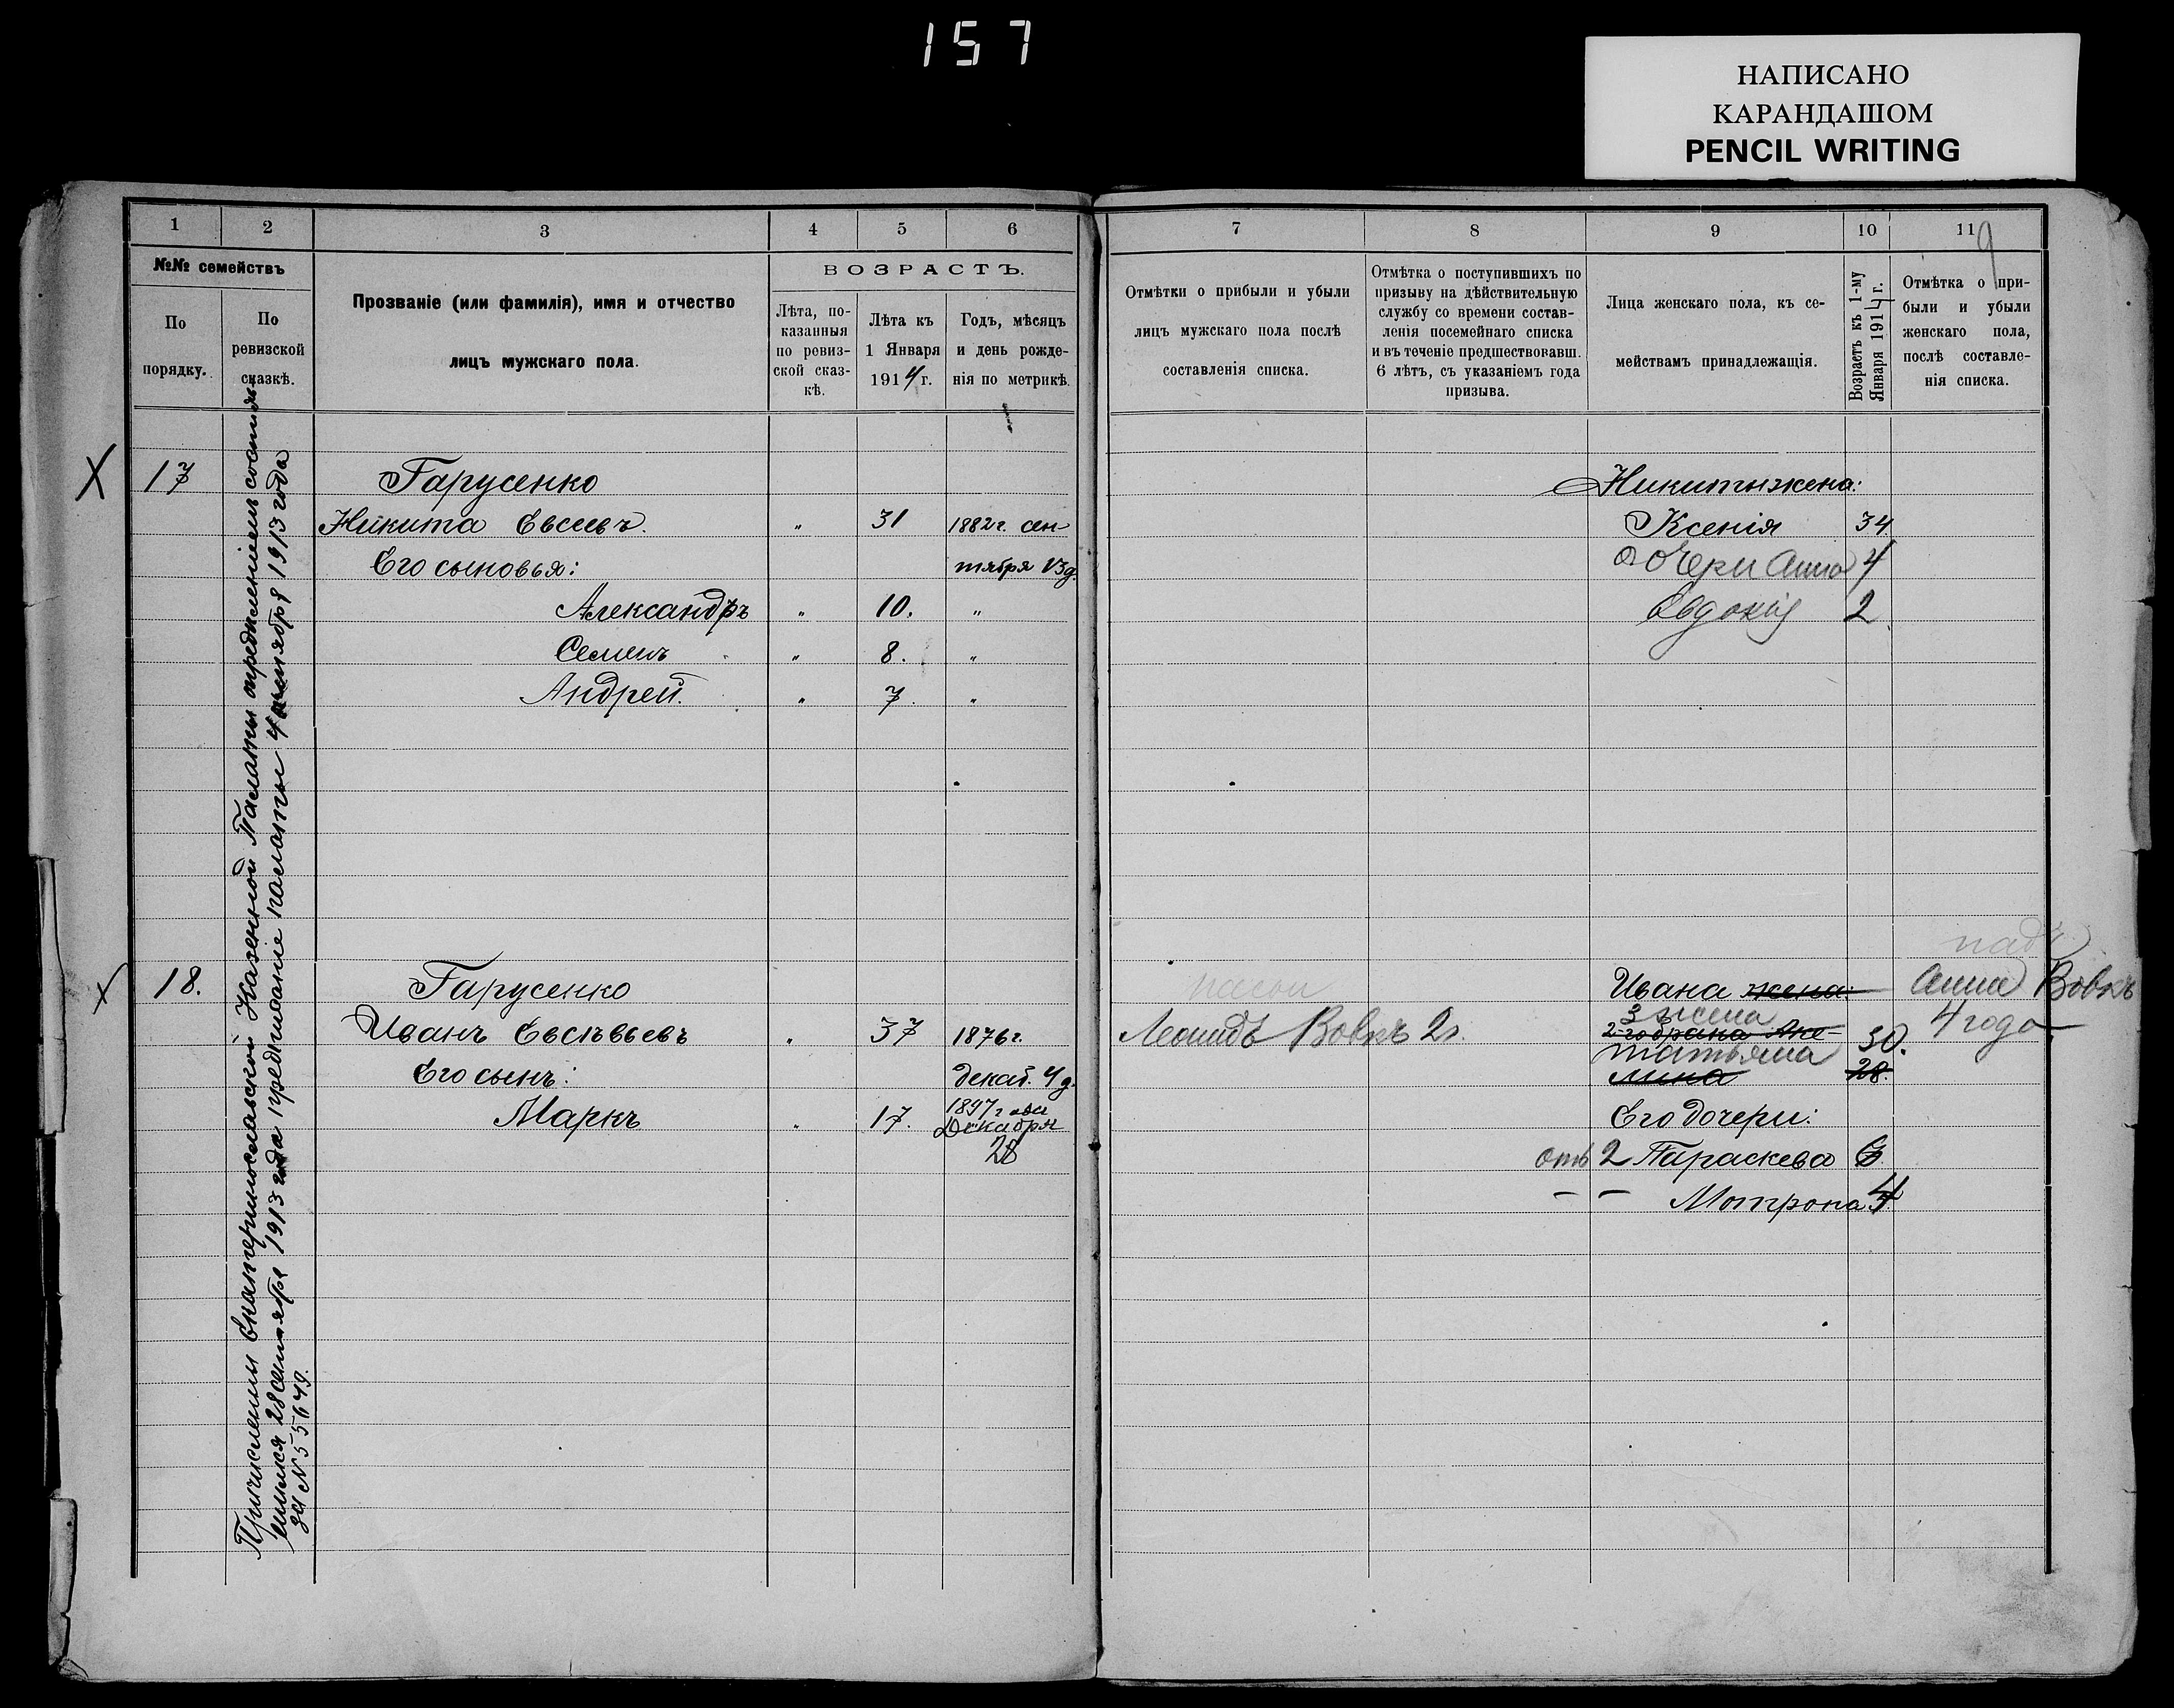 157
НАПИСАНО
КАРАНДАШОМ
PENCIL WRITING
1 2 3 4 5 6
№№ семействъ
По порядку.
По ревизской сказкѣ.
Прозваніе (или фамилія), имя и отчество
лицъ мужскаго пола.
ВОЗРАСТЪ.
Лѣта, по-
казанныя
по ревиз-
ской сказ-
кѣ.
Лѣта къ
1 Января
1914 г.
Годъ, мѣсяцъ
и день рожде-
нія по метрикѣ.
7 8 9 10 11
9
Отмѣтки о прибыли и убыли
лицъ мужскаго пола послѣ
составленія списка.
Отмѣтка о поступившихъ по
призыву на дѣйствительную
службу со времени состав-
ленія посемейнаго списка
и въ теченіе предшествовавш.
6 лѣтъ, съ указаніемъ года
призыва.
Лица женскаго пола, къ се-
мействамъ принадлежащія.
Возрастъ къ 1-му
Января 1914 г.
Отмѣтка о при-
были и убыли
женскаго пола,
послѣ составле-
нія списка.
Причислены Екатеринославской Казенной Палаты
28 сентября 1913 года предписаніе палаты 4 1913 года
за № 55649.
X 17 Гарусенко
Никита Евсеевъ. " 31 1882 г. сен-
Его сыновья: тября 13 д.
Александръ " 10. "
Семенъ " 8. "
Андрей. " 7. "
Никиты жена:
Ксенія 34
дочери Анна 4
Евдокія 2
X 18. Гарусенко
Иванъ Евсѣвьевъ " 37 1876 г.
Его сынъ: декаб. 4 д.
Маркъ " 17. 1897 года
Декабря
28
Леонидъ Вовкъ 2 г.
Ивана жена:
3 жена
2-го брака Аку-
Татьяна 30.
лина 28.
Его дочери:
отъ 2 Параскева
– – Мотрона 4
Анна Вовкъ
4 года